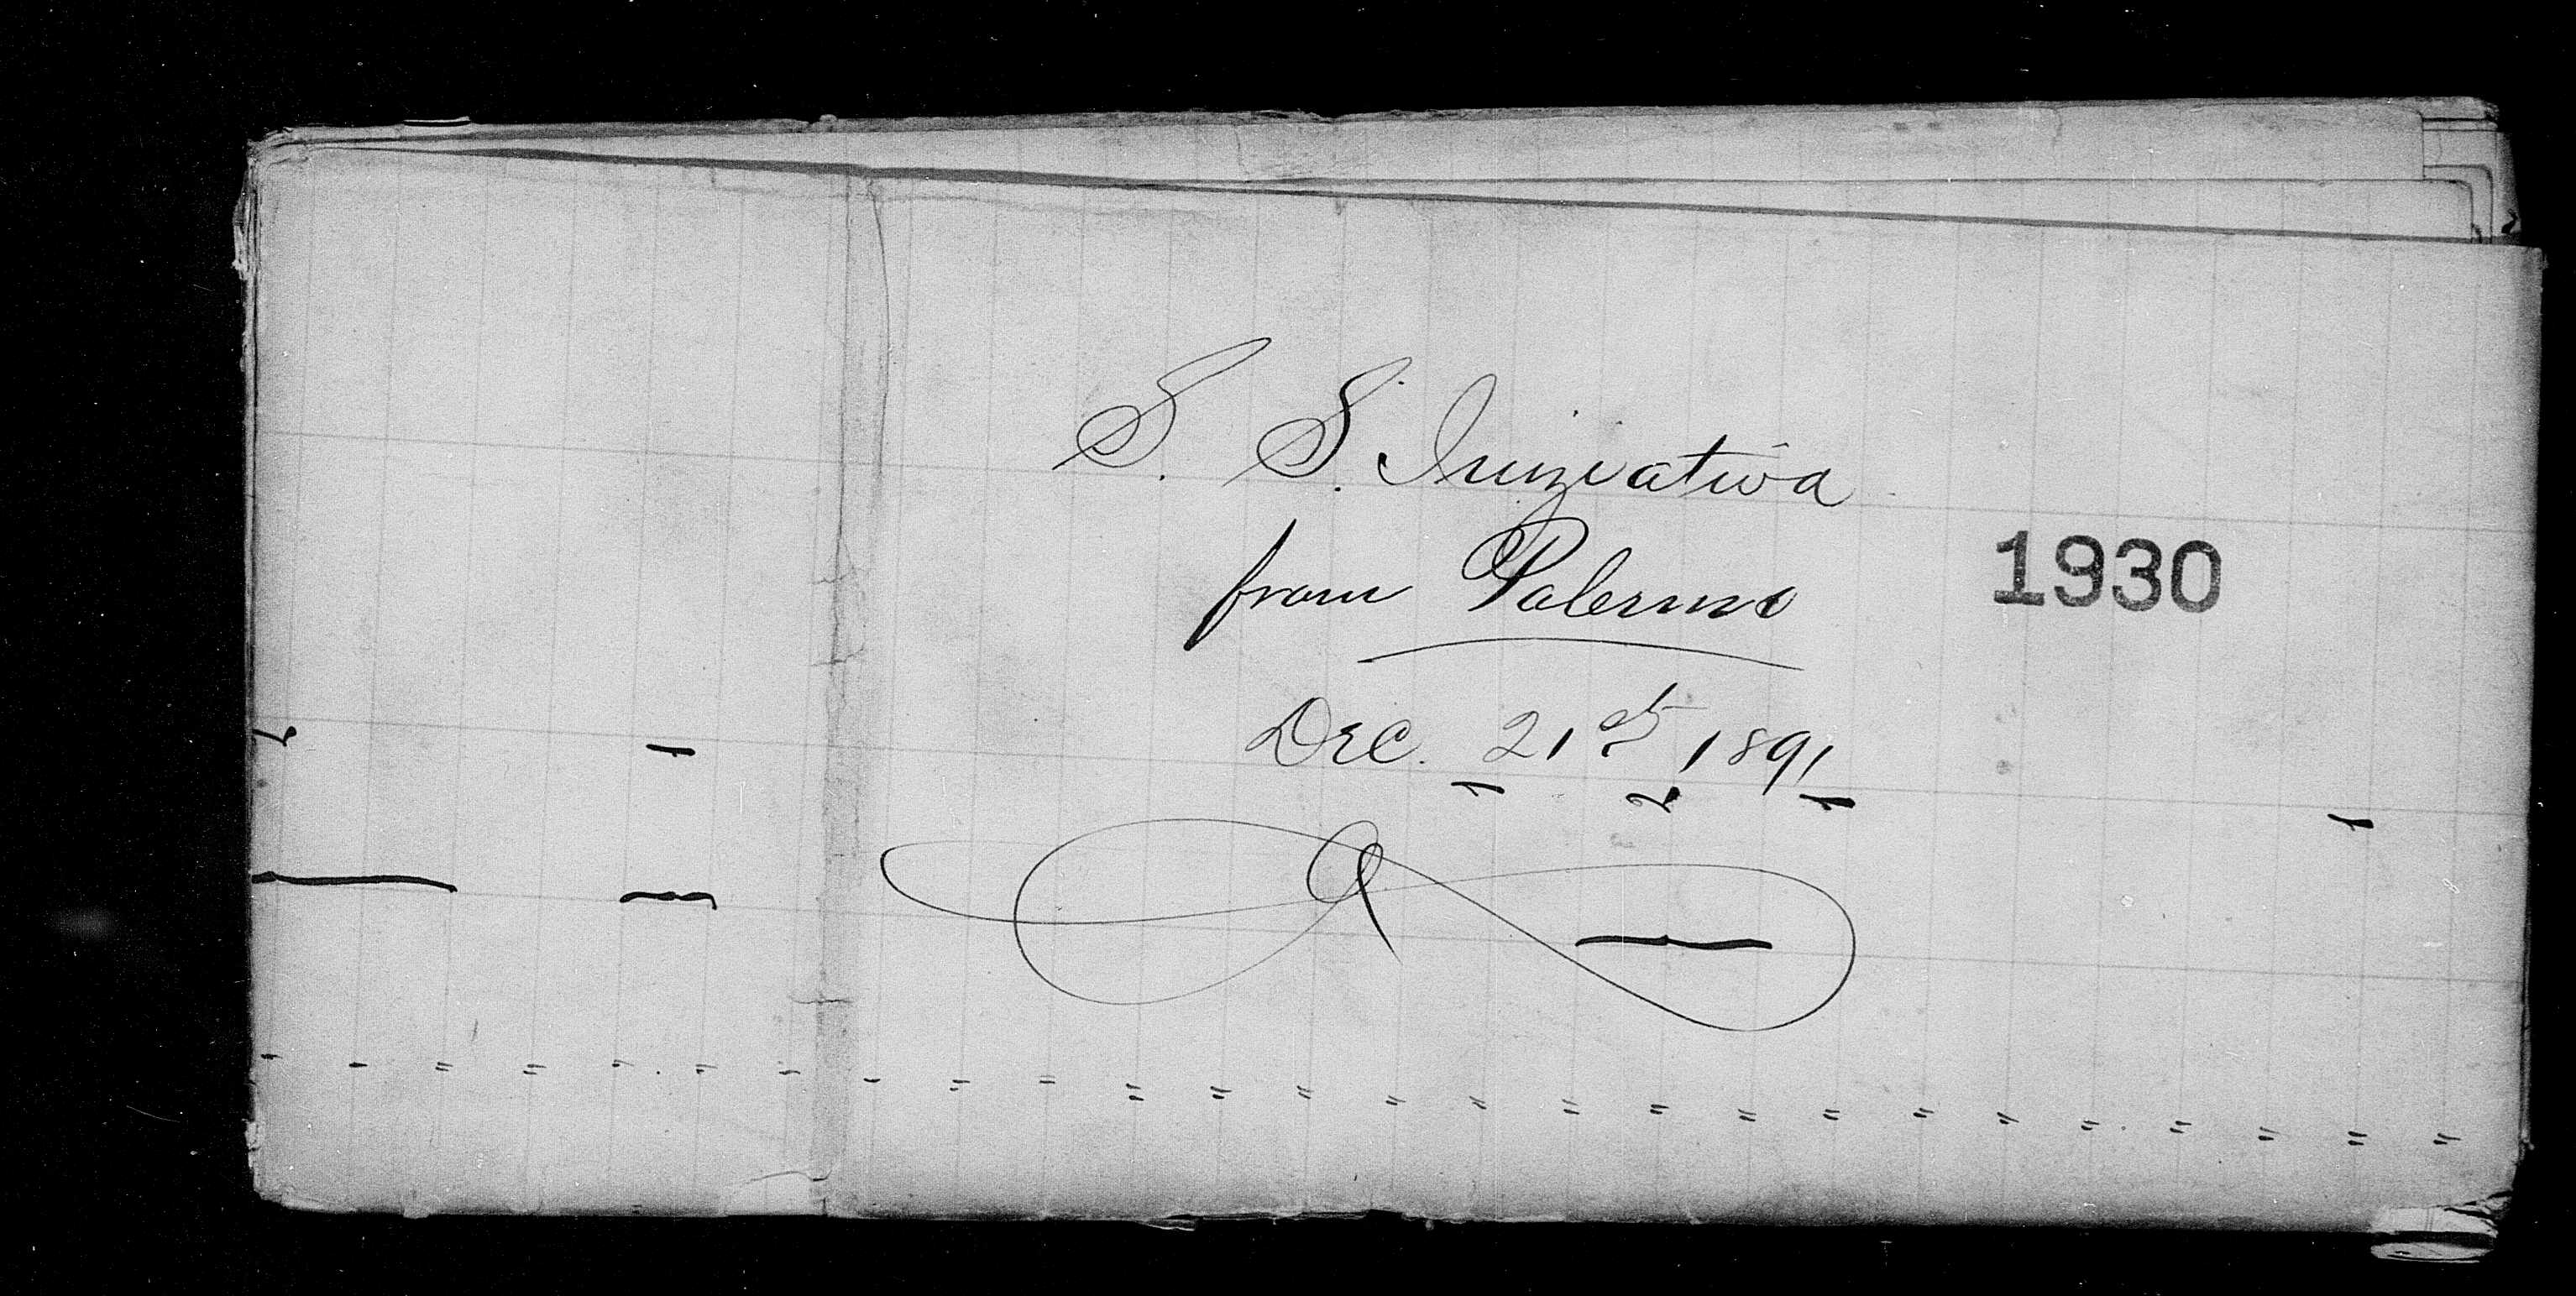 S. S. Iniziativa
from Palermo
1930
Dec. 21st 1891